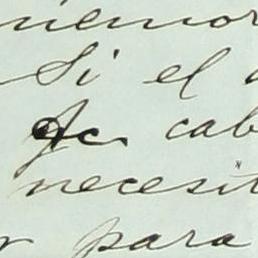 memor
Si el
cab
necesit
para